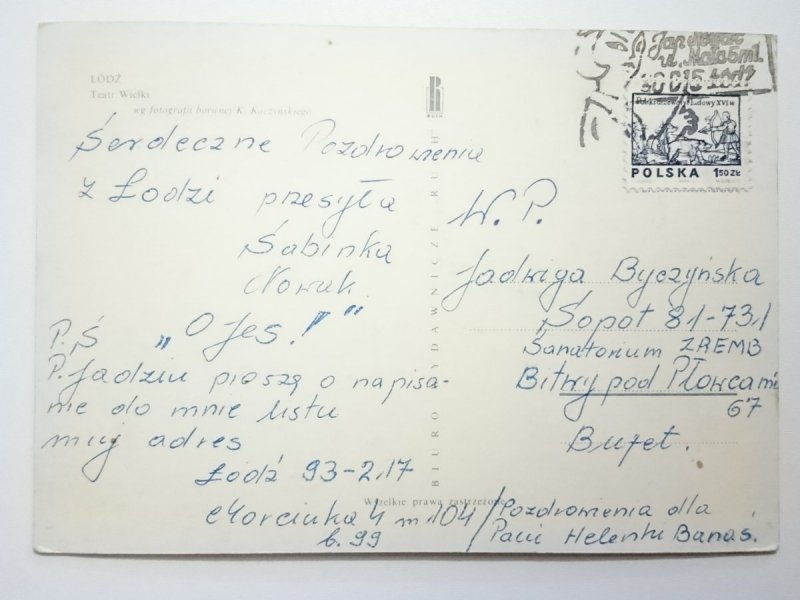 ŁÓDŹ
Teatr Wielki
wg fotografii barwnej K. Kaczyńskiego
Serdeczne Pozdrowienia
z Łodzi przesyła
Sabinka
Nowak
P.S „O Jes!”
P. Jadziu proszę o napisa-
nie do mnie listu
muj adres
Łódź 93-217
Morcinka 4 m 104
b. 99
BIURO WYDAWNICZE RUCH
Wszelkie prawa zastrzeżone
Jan Nowak
ul. Mała 5 m 1
90 615 Łódź
Polski drzeworyt ludowy XVI w.
POLSKA 1,50 ZŁ
W. P.
Jadwiga Byczyńska
Sopot 81-731
Sanatorium ZREMB
Bitwy pod Płowcami
67
Bufet.
/Pozdrowienia dla
Pani Helenki Banaś.